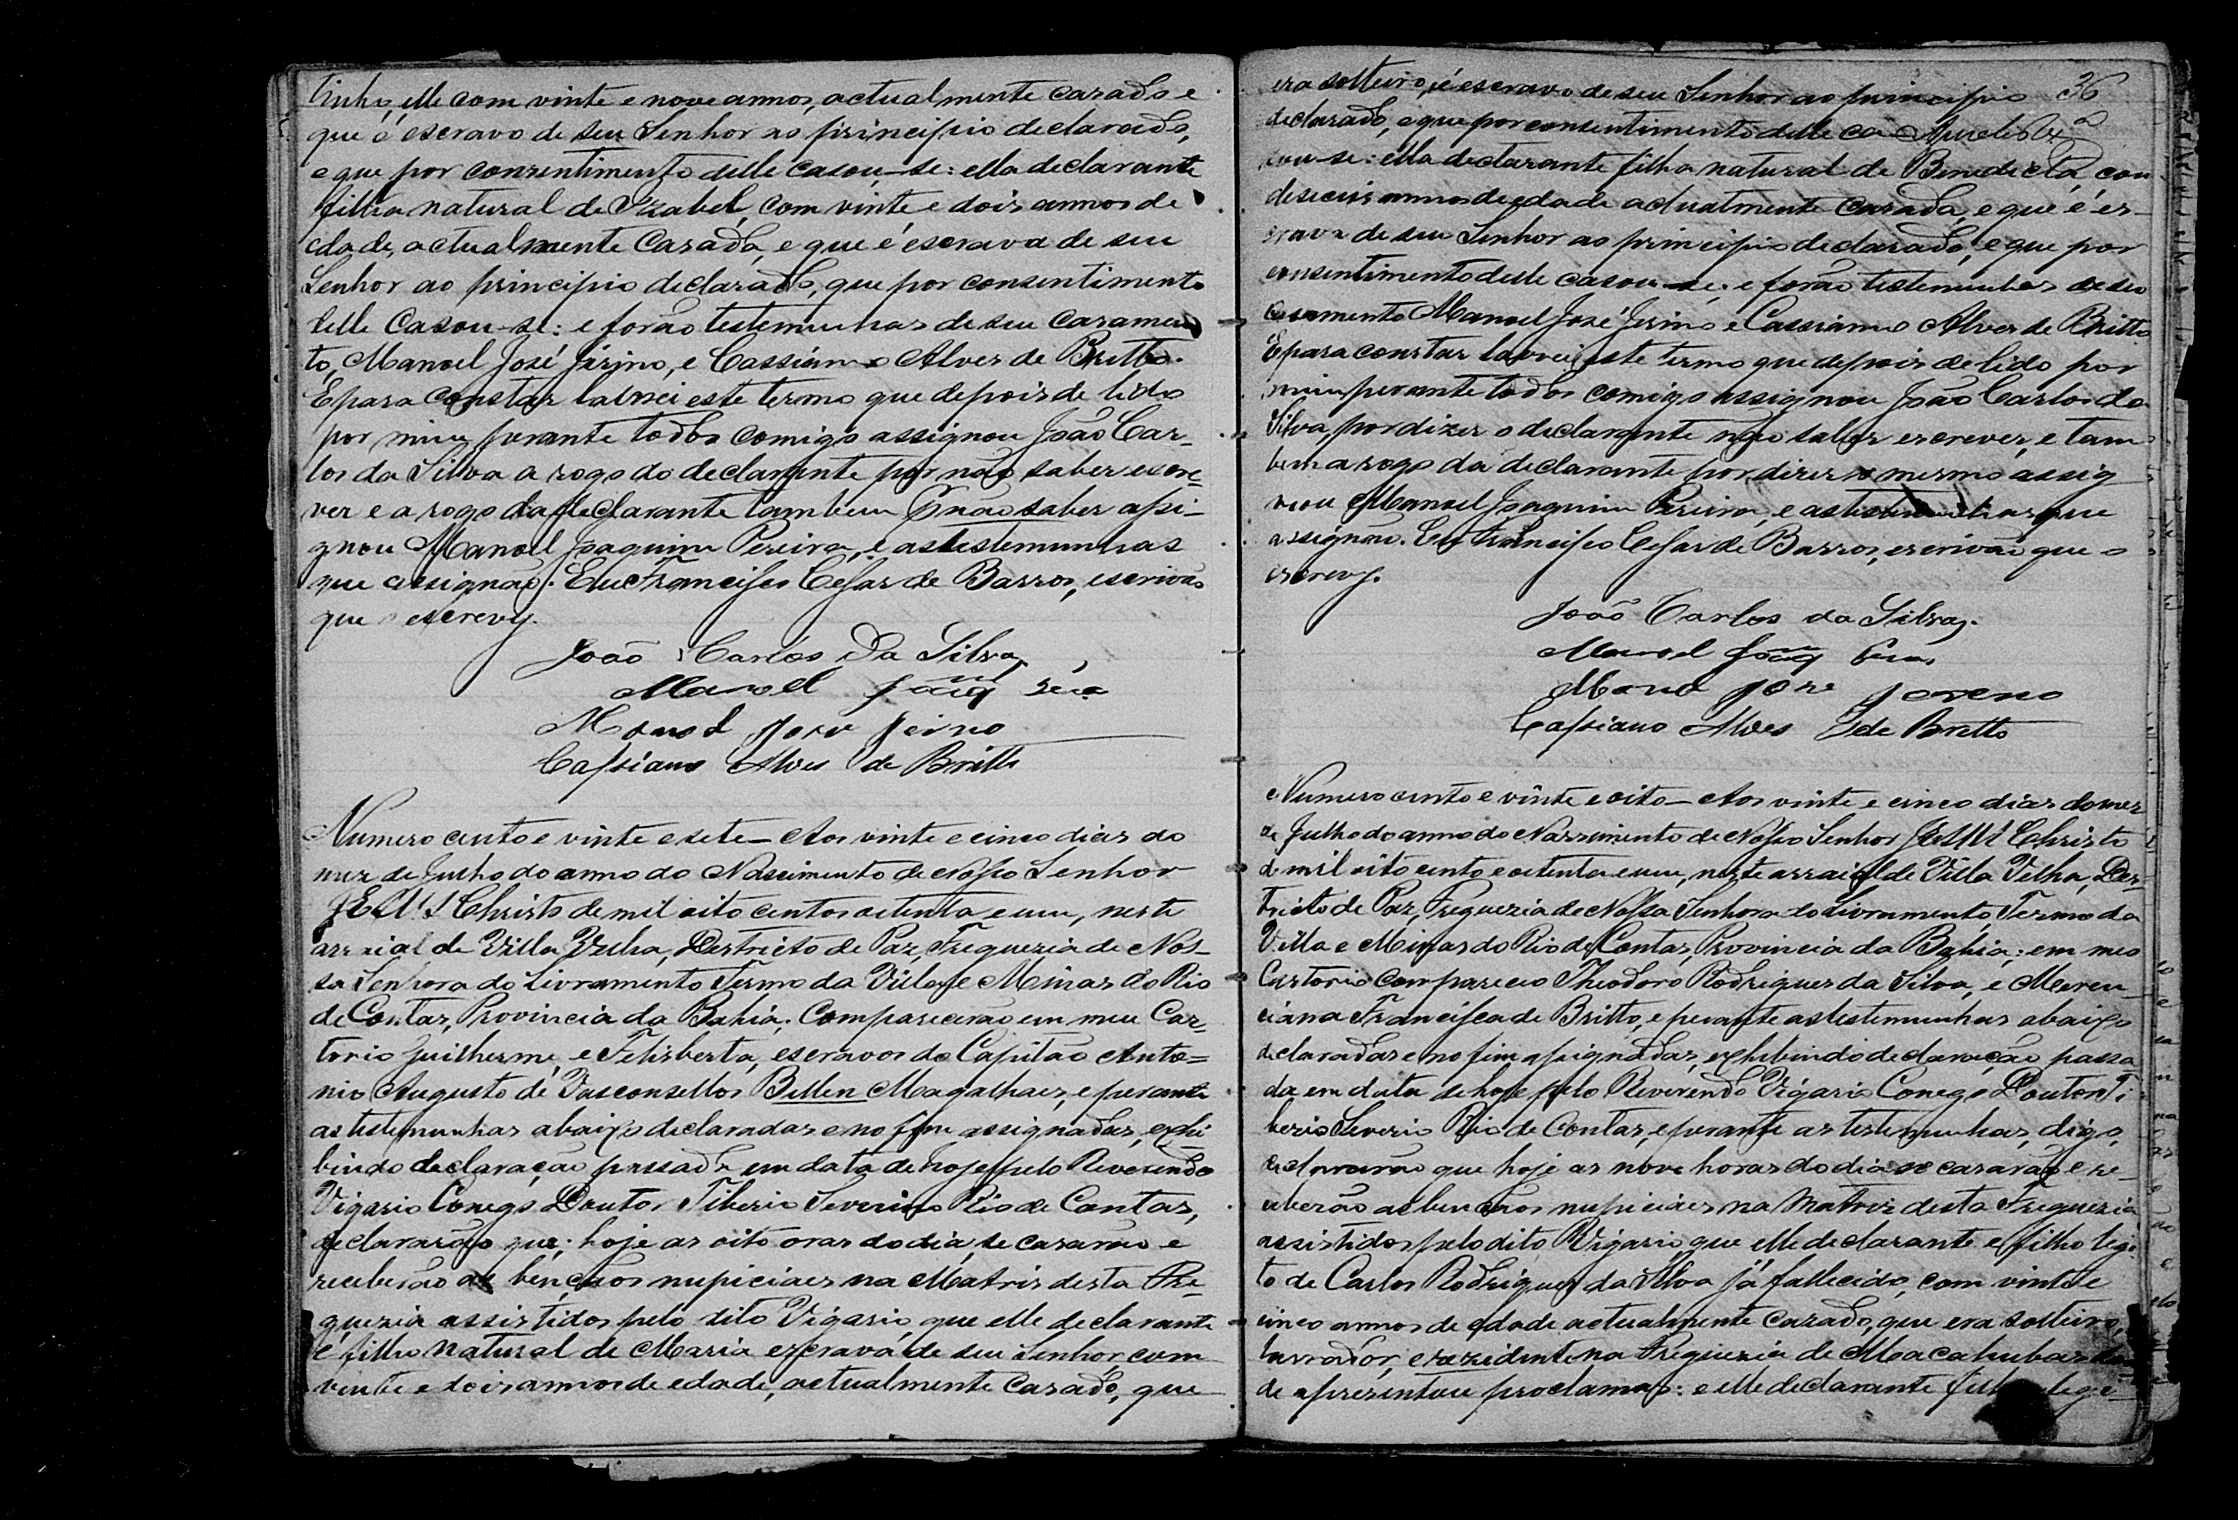 elle com vinte e nove annos, actualmente casado e
que é escravo de seu Senhor ao principio declarado,
e que por consentimento delle casou-se: ella declarante
filha natural de Izabel, com vinte e dois annos de
edade, actualmente casada, e que é escrava de seu
Senhor ao principio declarado, que por consentimento
delle casou-se: e forão testemunhas de seu casamen
to, Manoel José Jirino, e Cassiano Alves de Britto.
E para constar lavrei este termo que depois de lido
por mim perante todos comigo assignou João Car-
los da Silva a rogo do declarante por não saber escre-
ver e a rogo da declarante tambem não saber assi-
gnou Manoel Joaquim Pereira, e as testemunhas
que assignão. Eu Francisco Cesar de Barros, escrivão
que escrevy.
João Carlos da Silva
Manoel Joaq
Manoel Jose Jirino
Cassiano Alves de Britto
Numero cento e vinte e sete— Aos vinte e cinco dias do
mez de Julho do anno do Nascimento de Nosso Senhor
JESUS Christo de mil oito centos oitenta e um, neste
arraial de Villa Velha, Destricto de Paz, Freguezia de Nos-
sa Senhora do Livramento Termo da Villa e Minas do Rio
de Contas, Provincia da Bahia; Comparecerão em meu Car-
torio Guilherme, e Felisberta, escravos do Capitão Anto=
nio Augusto de Vasconsellos Bellen Magalhaes, e perante
as testemunhas abaixo declaradas e no fim assignadas, exhi
bindo declaração passada em data de hoje pelo Reverendo
Vigario Conego Doutor Tiberio Severino Rio de Contas,
declararão que; hoje as oito oras do dia, se casarão e
receberão as bençaos nupiciaes na Matris desta Fre-
guezia assistidos pelo dito Vigario, que elle declarante
é filho natural de Maria escrava de seu Senhor, com
vinte e dois annos de edade, actualmente casado, que
era solteiro, é escravo de seu Senhor ao principio 36
declarado, e que por consentimento delle ca
sou-se: ella declarante filha natural de Benedicta, com
deseceis annos de edade actualmente casada, e que é es-
crava de seu Senhor ao principio declarado, e que por
consentimento delle casou-se: e forão testemunhas de seu
casamento Manoel José Jirino e Cassiano Alves de Britto
E para constar lavrei este termo que depois de lido por
mim perante todos comigo assignou João Carlos da
Silva, por dizer o declarante não saber escrever, e tam
bem a rogo da declarante por dizer o mesmo assig
nou Manoel Joaquim Pereira, e as testemunhas que
assignão. Eu Francisco Cesar de Barros, escrivão que o
escrevy.
João Carlos da Silva.
Manoel Joaq
Manoel Joze
Cassiano Alves de Britto
Numero cento e vinte e oito— Aos vinte e cinco dias do mez
de Julho do anno do Nascimento de Nosso Senhor JESUS Christo
de mil oito cento e oitenta e um, neste arraial de Villa Velha, Des-
tricto de Paz, Freguezia de Nossa Senhora do Livramento, Termo da
Villa e Minas do Rio de Contas, Provincia da Bahia; em meu
Cartorio compareceo Theodoro Rodrigues da Silva, e Meren-
ciana Francisca de Britto, e perante as testemunhas abaixo
declaradas e no fim assignadas, exhibindo declaração passa
da em data de hoje pelo Reverendo Vigario Conego Doutor Ti
berio Severio Rio de Contas, e perante as testemunhas, digo,
declararão que hoje as nove horas do dia se casarão e re-
ceberão as bençaos nupiciaes na Matris desta Freguezia
assistidos pelo dito Vigario que elle declarante é filho legi
to de Carlos Rodrigues da Silva já fallecido, com vinte e
cinco annos de edade actualmente casado, que era solteiro,
lavrador, e rezidente na Freguezia de Macahubas
de aprezentou proclamas: e elle declarante filha lege-